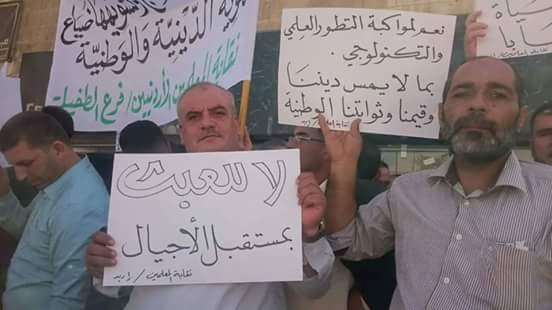 الدّينيّة والوطنيّة
نقابة المعلمين الأردنيين/ فرع الطفيلة
نعم لمواكبة التطور العلمي
والتكنولوجي
بما لا يمس ديننا
وقيمنا وثوابتنا الوطنية
نقابة المعلمين / اربد
لا للعبث
بمستقبل الأجيال
نقابة المعلمين / اربد